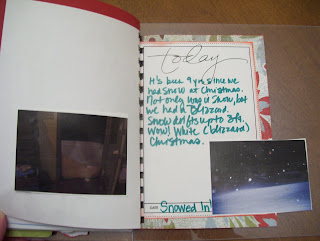 today
It's been 9 yrs since we
had snow at Christmas.
Not only was it snow, but
we had a Blizzard.
Snow drifts up to 3ft.
Wow! White (blizzard)
Christmas.
DATE Snowed In!